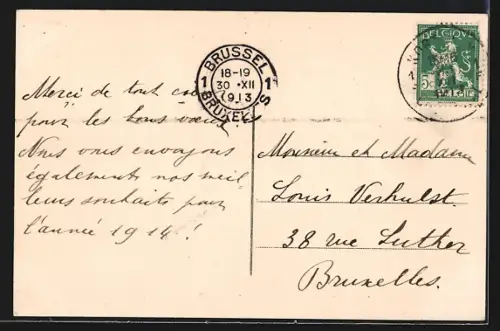 BELGIQUE
BRUSSEL
18-19
1 30 XII 1
1913
BRUXELLES
Merci de tout cœur
pour les bons vœux.
Nous vous envoyons
également nos meil
leurs souhaits pour
l'année 1914!
Monsieur et Madame
Louis Verhulst.
38 rue Luther
Bruxelles.